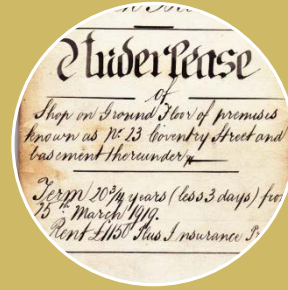 Underlease
of
Shop on Ground Floor of premises
known as No. 23 Coventry Street and
basement thereunder
Term 20¾ years (less 3 days) from
25th March 1919.
Rent £1150 Plus Insurance